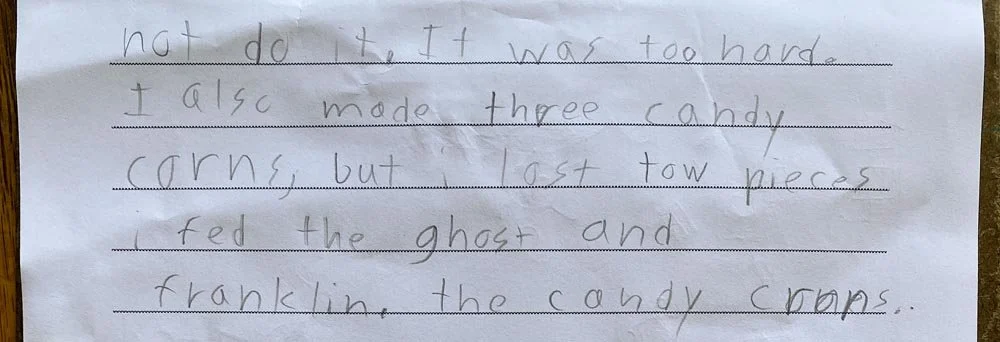 not do it. It was too hard.
I also made three candy
corns, but i lost tow pieces
i fed the ghost and
franklin. the candy crons..